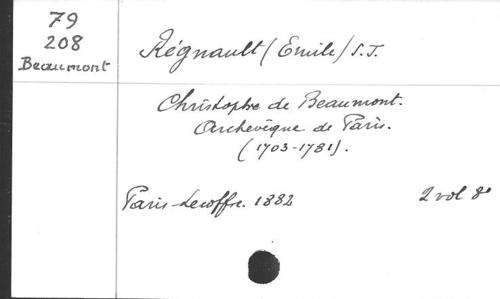 79
208
Beaumont
Régnault (Emile) S.J.
Christophe de Beaumont.
Archevêque de Paris.
(1703-1781).
Paris-Lecoffre. 1882
2 vol 8°